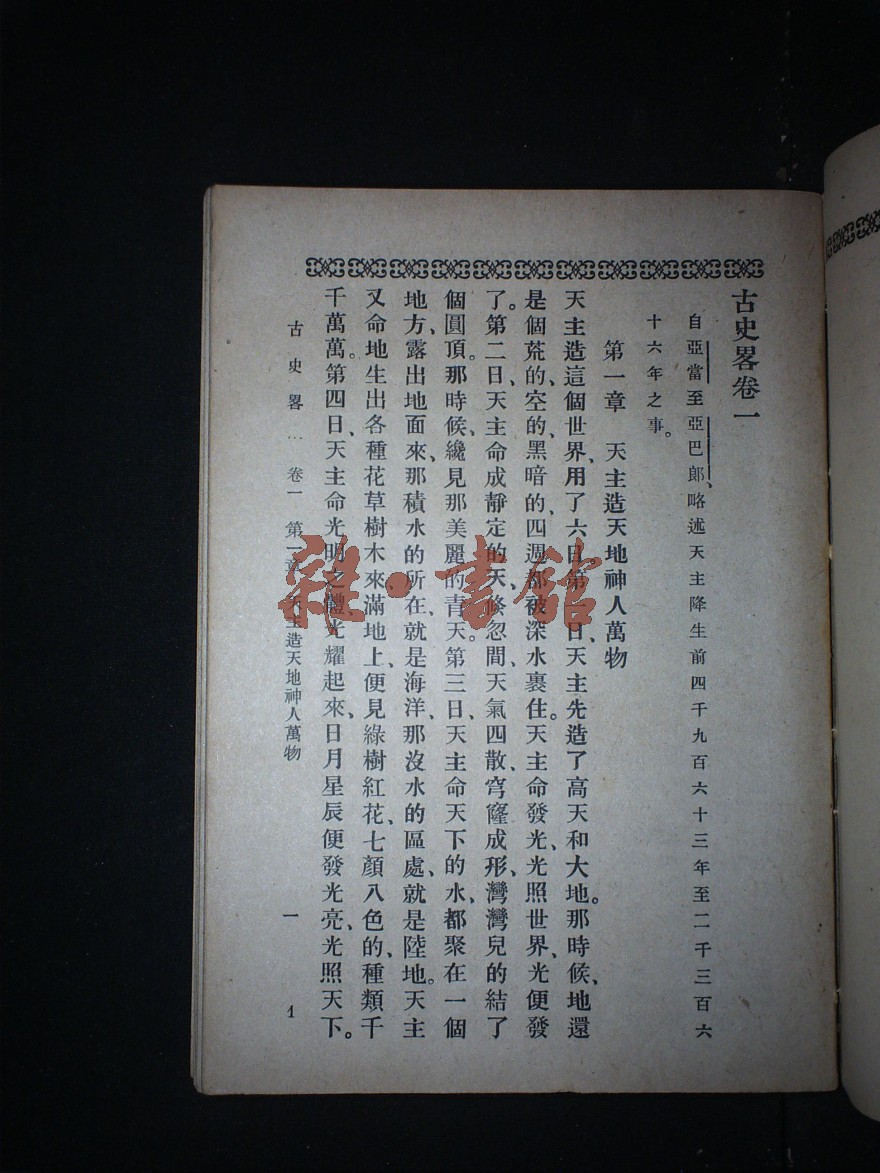 古史畧卷一
自亞當至亞巴郎、略述天主降生前四千九百六十三年至二千三百六
十六年之事。
第一章　天主造天地神人萬物
天主造這個世界、用了六日、第一日、天主先造了高天和大地。那時候、地還
是個荒的、空的、黑暗的、四週都被深水裹住。天主命發光、光照世界、光便發
了。第二日、天主命成靜定的天、倏忽間、天氣四散、穹窿成形、灣灣兒的結了
個圓頂。那時候、纔見那美麗的青天。第三日、天主命天下的水、都聚在一個
地方、露出地面來、那積水的所在、就是海洋、那沒水的區處、就是陸地。天主
又命地生出各種花草樹木來、滿地上、便見綠樹紅花、七顏八色的、種類千
千萬萬。第四日、天主命光明之體、光耀起來、日月星辰便發光亮、光照天下。
古史畧…卷一　第一章　天主造天地神人萬物　一　1
雜·書館